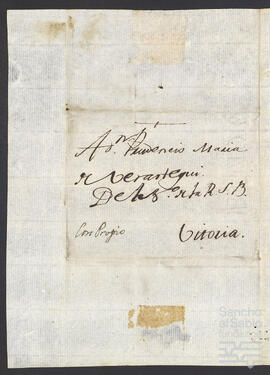 A Dn. Prudencio Maria
de Verastegui.
de la R. S. B.
Con Propio
Vitoria.
Sancho
el Sabio